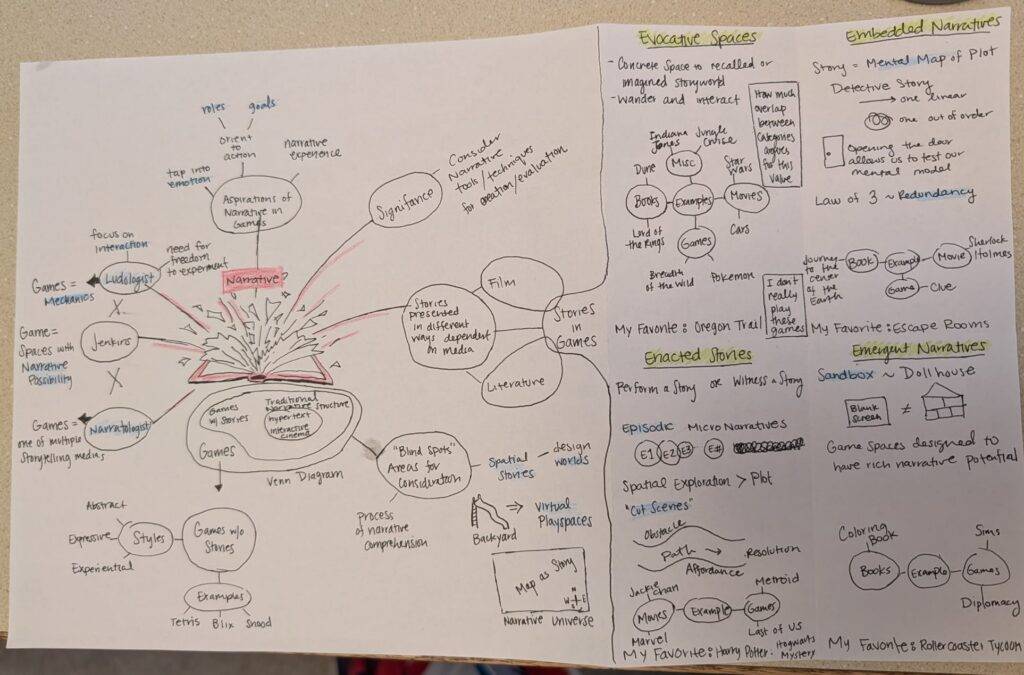 roles
goals
orient
to
action
narrative
experience
tap into
emotion
Aspirations of
Narrative in
Games
Significance
Consider
Narrative
tools/techniques
for creation/evaluation
focus on
interaction
need for
freedom
to experiment
Ludologist
Games =
Mechanics
Narrative?
Game =
Spaces with
Narrative
Possibility
Jenkins
Games =
one of multiple
Storytelling medias
Narratologist
Film
Stories
presented
in different
ways dependent
on media
Literature
Stories
in
Games
Games
w/ Stories
Traditional
Narrative Structure
hypertext
interactive
cinema
Games
Venn Diagram
"Blind Spots"
Areas for
Consideration
Spatial
Stories
design
worlds
process
of narrative
comprehension
Backyard
Virtual
Playspaces
Map as Story
N
W E
S
Narrative Universe
Abstract
Expressive
Experiential
Styles
Games w/o
Stories
Examples
Tetris
Blix
Snood
Evocative Spaces
- Concrete Space to recalled or
imagined storyworld
- Wander and interact
How much
overlap
between
Categories
argues
for this
value
Indiana
Jones
Jungle
Cruise
Misc
Dune
Star
Wars
Books
Examples
Movies
Lord of
the Rings
Games
Cars
Breath
of the Wild
Pokemon
I don't
really
play
these
games
My Favorite: Oregon Trail
Embedded Narratives
Story = Mental Map of Plot
Detective Story
→ one linear
one out of order
Opening the door
allows us to test our
mental model
Law of 3 ~ Redundancy
Journey
to the
center of
the
Earth
Book
Example
Movie
Sherlock
Holmes
Game
Clue
My Favorite: Escape Rooms
Enacted Stories
Perform a Story or Witness a Story
Episodic Micro Narratives
E1
E2
E3
E#
Spatial Exploration > Plot
"Cut Scenes"
Obstacle
Path → Resolution
Affordance
Jackie
Chan
Metroid
Movies
Example
Games
Marvel
Last of US
My Favorite: Harry Potter: Hogwarts
Mystery
Emergent Narratives
Sandbox ~ Dollhouse
Blank
Screen
≠
Game Spaces designed to
have rich narrative potential
Coloring
Book
Sims
Books
Example
Games
Diplomacy
My Favorite: Rollercoaster Tycoon